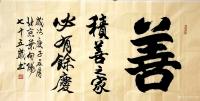 善
積善之家
必有餘慶
歲次庚子
七十五歲書